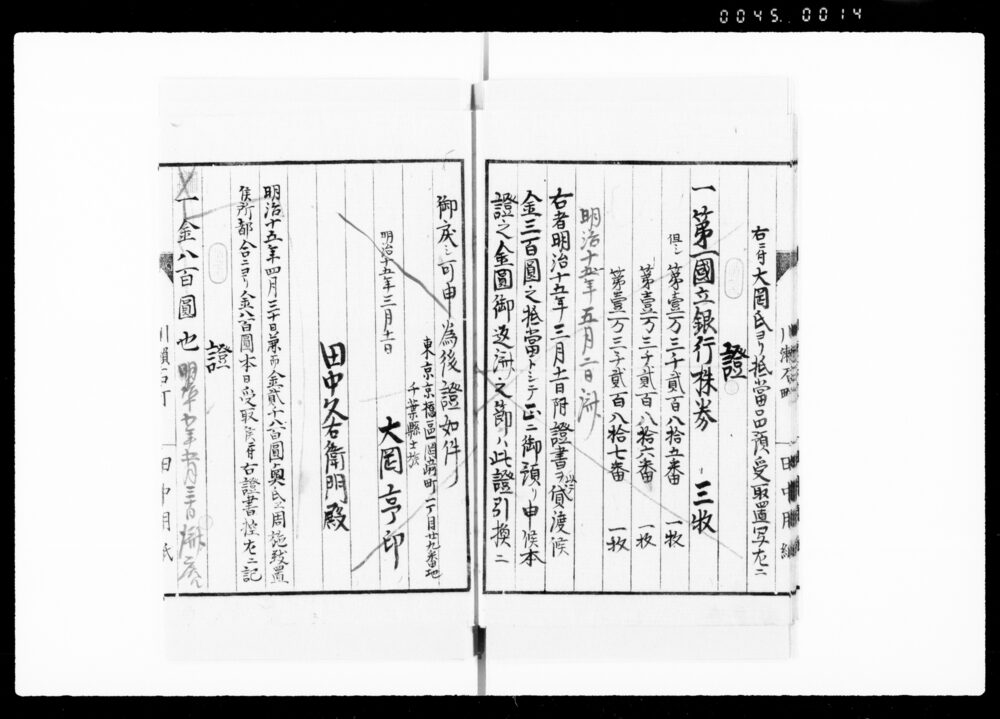 0045 0014
右ニ付大岡氏ヨリ抵當品預受取置写左ニ
證
一第一國立銀行株券 三枚
但シ第壹万三千貳百八拾五番 一枚
第壹万三千貳百八拾六番 一枚
第壹万三千貳百八拾七番 一枚
明治十五年五月二日済
右者明治十五年三月十一日附證書ヲ以貸渡候
金三百圓之抵當トシテ正ニ御預リ申候本
證之金圓御返済之節ハ此證引換ニ
御戻シ可申為後證如件
東京京橋區
町一丁目廿九番地
千葉縣士族
明治十五年三月十一日
大岡亨印
田中久右衛門殿
明治十五年四月三十日兼而金貳千八百圓奥氏ニ周施致置
候所都合ニヨリ金八百圓本日受取候ニ付右證書控左ニ記
證
一金八百圓也
田中用紙
田中用紙